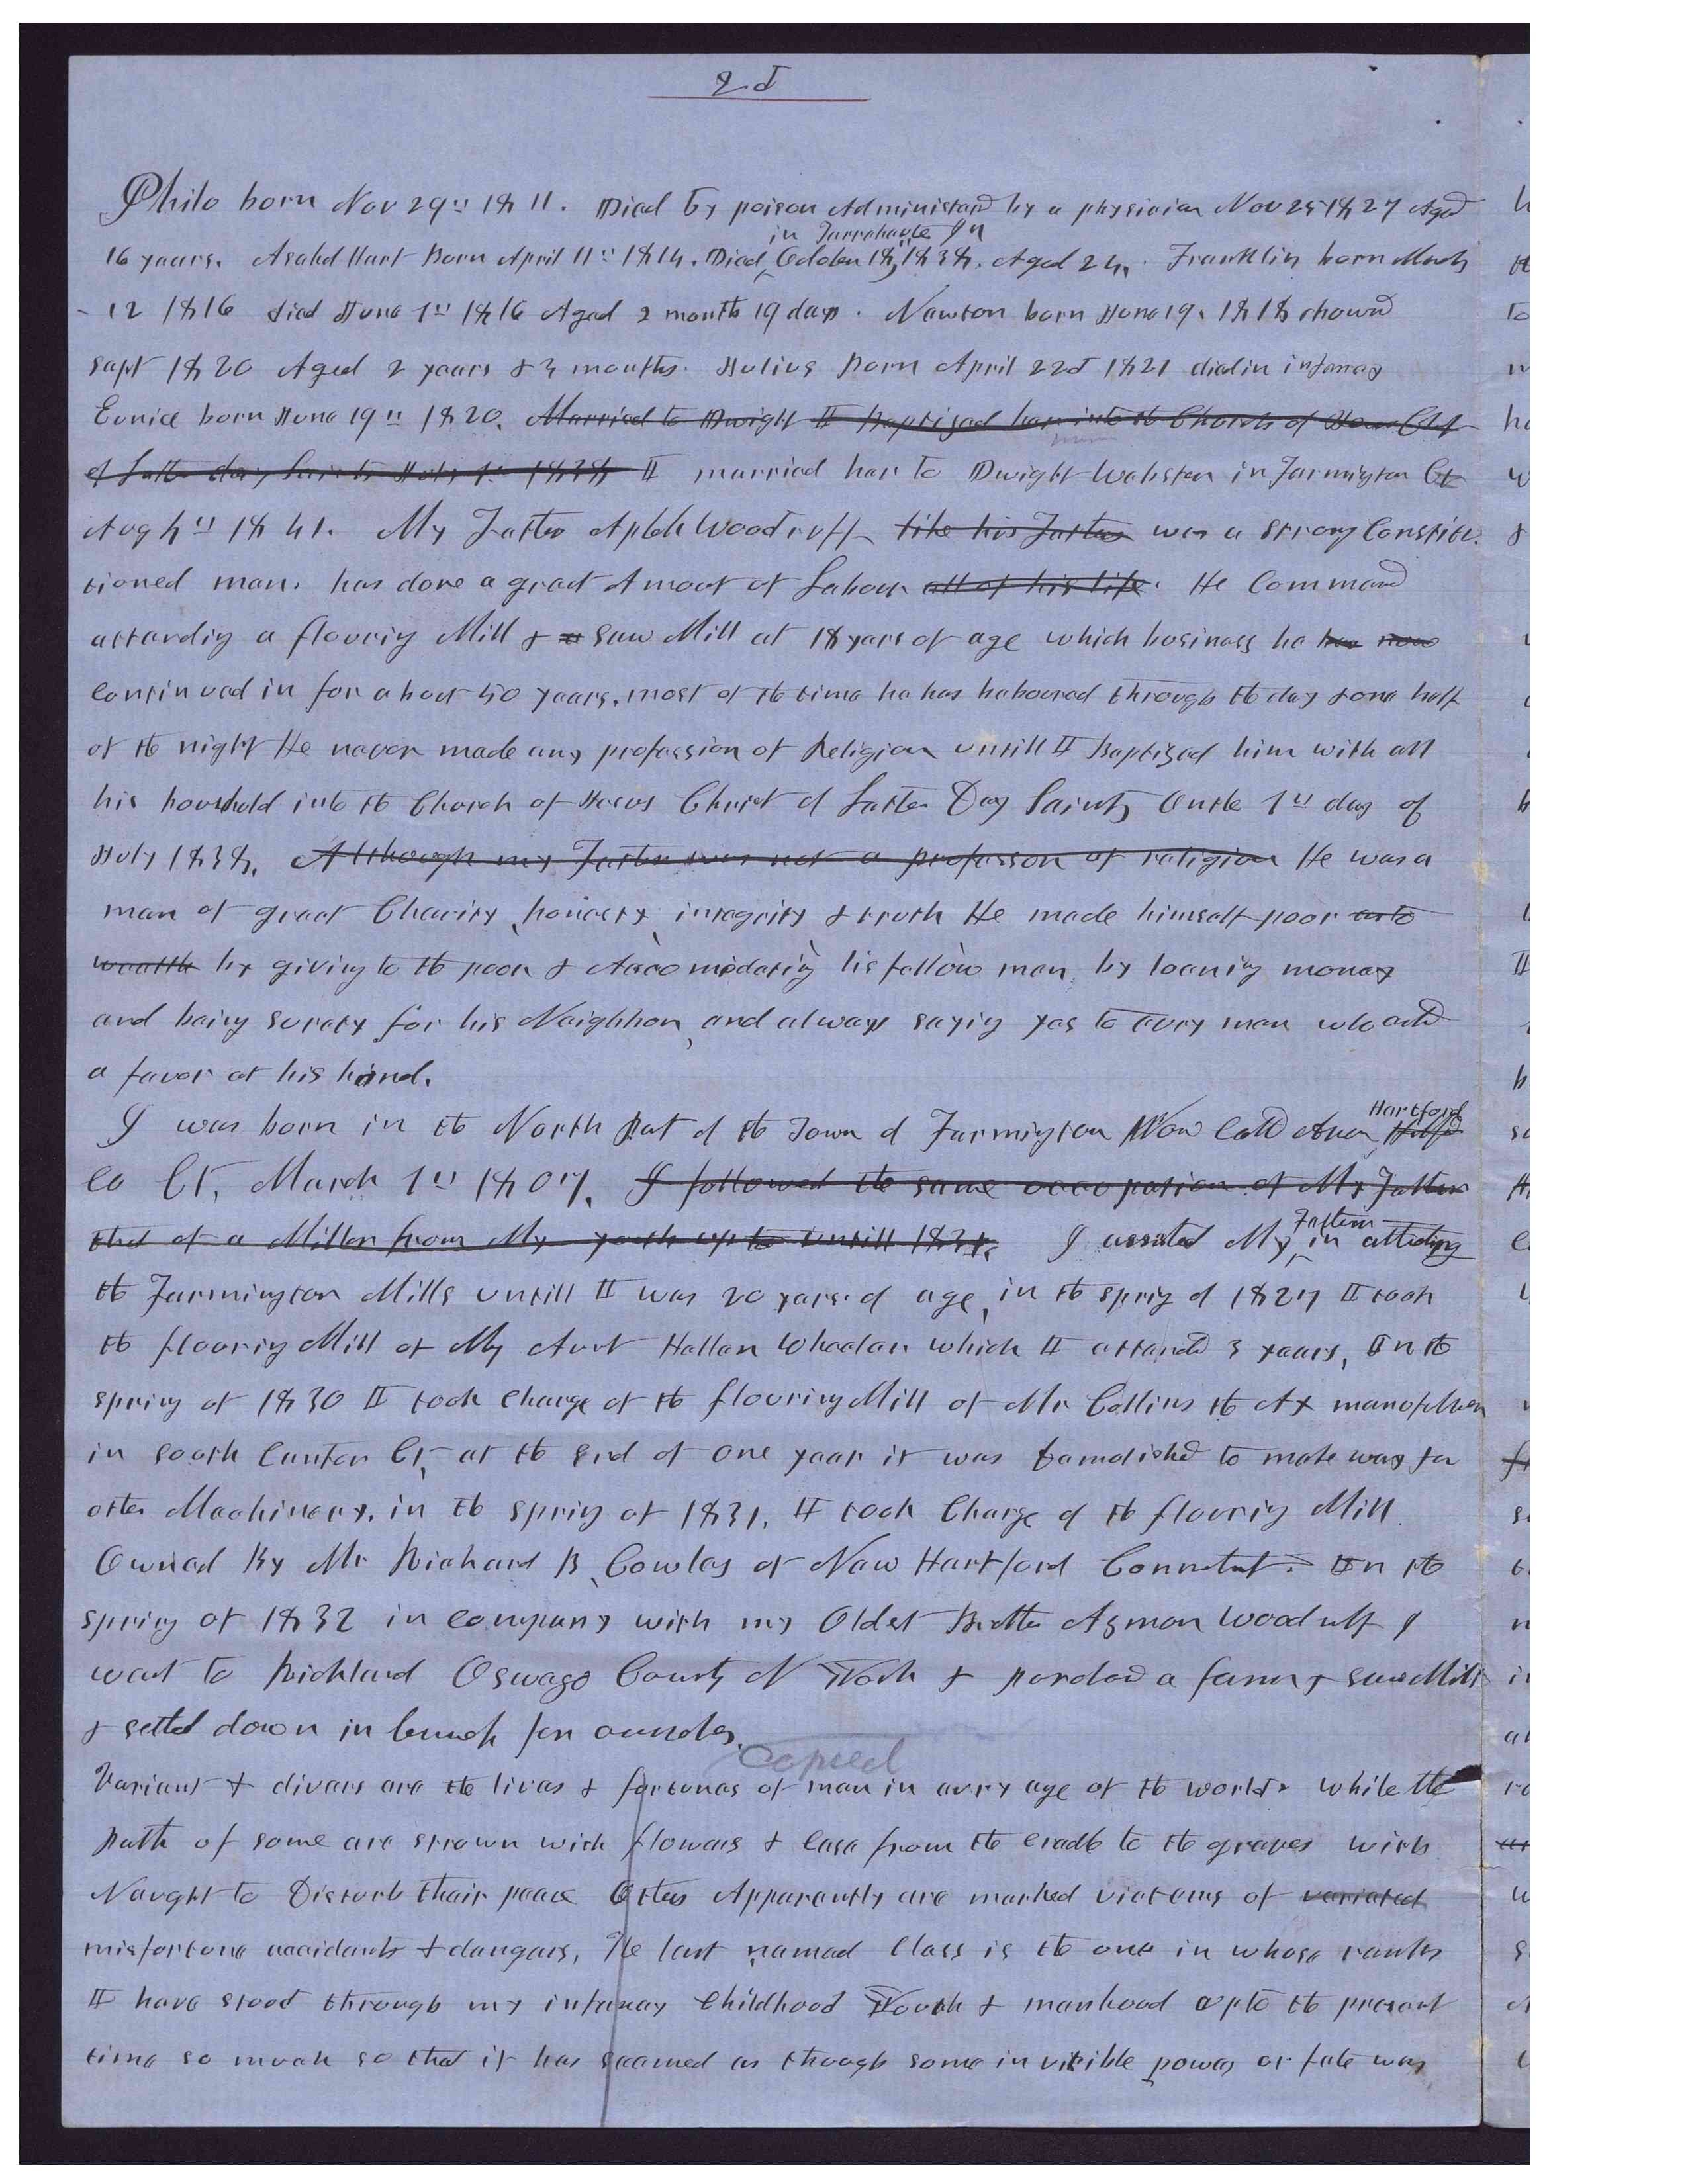 2d
Philo born Nov 29th 1811. Died by poison Administerd by a physician Nov 25 1827 Aged
in Terrehaute In
16 years. Asahel Hart Born April 11th 1814. Died October 18, 1838. Aged 24. Franklin born March
12 1816 died June 1st 1816 Aged 2 month 19 days. Newton born June 19. 1818 drownd
Sept 1820 Aged 2 years & 3 months. Julius Born April 22d 1821 died in infancy
Eunice born June 19th 1820. Married to Dwight I Baptized her into the Church of Jesus Christ
of Latter day Saints July 1st 1838 I married her to Dwight Webster in Farmington Ct
Aug 4th 1841. My Father Aphek Woodruff like his Father was a strong Constitu-
tioned man. has done a great Amoot of Labour all of his life. He Commend
attendig a flouriy Mill & a saw Mill at 18 years of age which business he has now
continued in for about 50 years. most of the time he has laboured through the day & one half
of the night He never made any profession of Religion untill I Baptized him with all
his houshold into the Church of Jesus Christ of Latter Day Saints On the 1st day of
July 1838. Although my Father was not a professor of religion He was a
man of great Charity, honesty, integrity & truth He made himself poor as to
wealth by giving to the poor & Accomodating his fellow man by loaning money
and being surety for his Neighbor, and always saying yes to evry man who asked
a favor at his hand.
Hartford
I was born in the North Part of the Town of Farmington Now Calld Avon, Hartford
Co Ct, March 1st 1807. I followed the same occupation of My Father
Father
that of a Miller from My youth up to untill 1831. I assisted My in attending
the Farmington Mills untill I was 20 years of age, in the sprig of 1827 I took
the flouriy Mill of My Aunt Hellen Wheeler which I attended 3 years, In the
spring of 1830 I took Charge of the flouring Mill of Mr Collins the Ax manufacturer
in South Canton Ct, at the End of one year it was demolished to make way for
other Machinery. in the sprig of 1831. I took Charge of the flouriy Mill
Owned By Mr Richard B, Cowles of New Hartford Connecticut. In the
spring of 1832 in company with my Oldest Brother Azmon Woodruff I
went to Richland Oswego County N York & purchased a farm & saw Mill
& settled down in business for ourselves.
Copied
Variant & divers are the lives & fortunes of man in evry age of the world. while the
Path of some are strown with flowers & Ease from the cradle to the graves with
Naught to Disturb their peace Others Apparently are marked victems of variated
misfortune accidents & dangers, The last named Class is the one in whose ranks
I have stood through my infancy Childhood Youth & manhood up to the present
time so much so that it has seemed as though some invisible power or fate was